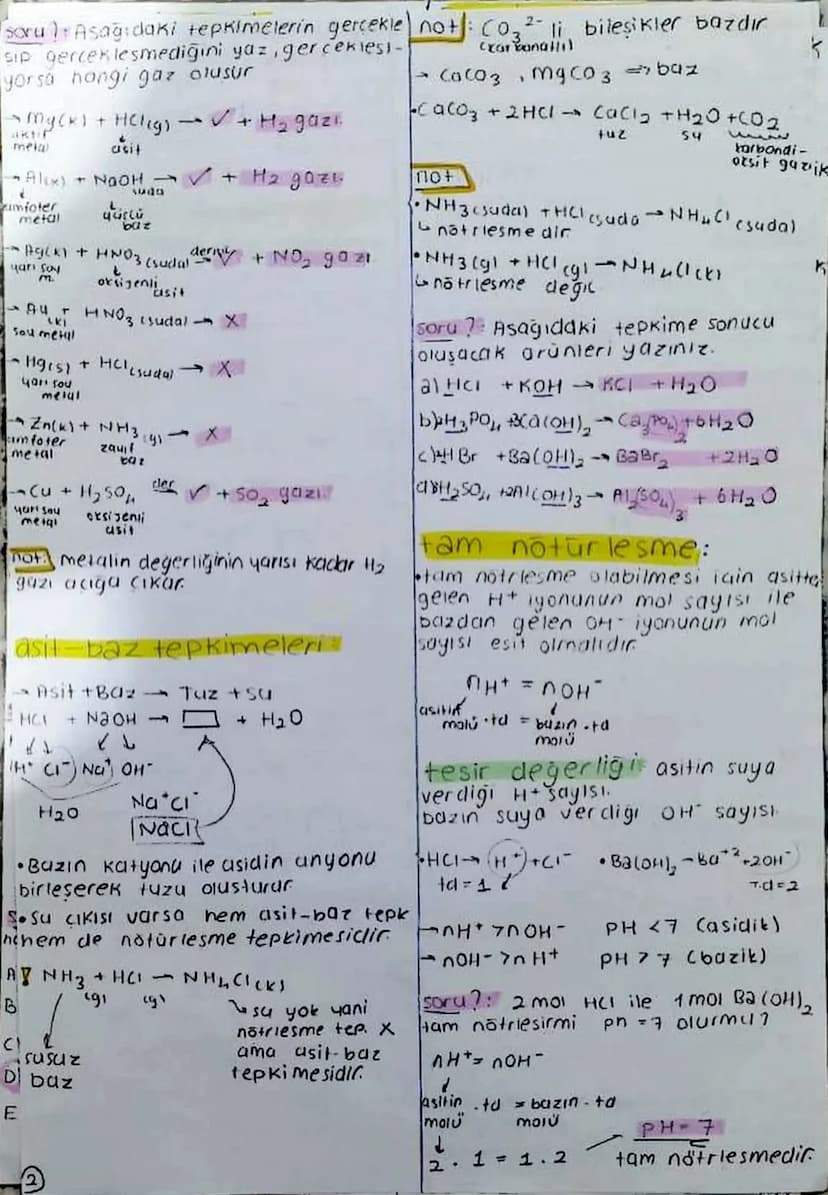 soru?: Aşağıdaki tepkimelerin gerçekle
şip gerçekleşmediğini yaz, gerçekleşi-
yorsa hangi gaz oluşur
→ Mg(k) + HCl(g) → ✓ + H₂ gazı
aktif metal
asit
→ Al(k) + NaOH suda → ✓ + H₂ gazı
amfoter metal
güçlü baz
→ Ag(k) + HNO₃ (suda) derişik → ✓ + NO₂ gazı
yarı soy m.
oksijenli asit
→ Au (k) + HNO₃ (suda) → X
soy metal
→ Hg(s) + HCl (suda) → X
yarı soy metal
→ Zn(k) + NH₃ (g) → X
amfoter metal
zayıf baz
→ Cu + H₂SO₄ der → ✓ + SO₂ gazı
yarı soy metal
oksijenli asit
not: metalin değerliğinin yarısı kadar H₂
gazı açığa çıkar.
asit-baz tepkimeleri:
→ Asit + Baz → Tuz + su
HCl + NaOH → + H₂O
H⁺ Cl⁻ Na⁺ OH⁻
H₂O
Na⁺Cl⁻
NaCl
• Bazın katyonu ile asidin anyonu
birleşerek tuzu oluşturur
• Su çıkışı varsa hem asit-baz tepk
hem de nötürleşme tepkimesidir.
! NH₃ (g) + HCl (g) → NH₄Cl(k)
susuz baz
↳ su yok yani
nötrleşme tep. X
ama asit-baz
tepkimesidir.
A
B
C
D
E
2
not: CO₃²⁻ li bileşikler bazdır
(karbonatlı)
→ CaCO₃, MgCO₃ ⇒ baz
• CaCO₃ + 2HCl → CaCl₂ + H₂O + CO₂
tuz su karbondi-
oksit gazı
not
• NH₃ (suda) + HCl (suda) → NH₄Cl (suda)
↳ nötrleşmedir
• NH₃(g) + HCl (g) → NH₄Cl(k)
↳ nötrleşme değil
soru?: Aşağıdaki tepkime sonucu
oluşacak ürünleri yazınız.
a) HCl + KOH → KCl + H₂O
b) 2H₃PO₄ + 3Ca(OH)₂ → Ca₃(PO₄)₂ + 6H₂O
c) 2HBr + Ba(OH)₂ → BaBr₂ + 2H₂O
d) 3H₂SO₄ + 2Al(OH)₃ → Al₂(SO₄)₃ + 6H₂O
tam nötürleşme:
• tam nötrleşme olabilmesi için asitte
gelen H⁺ iyonunun mol sayısı ile
bazdan gelen OH⁻ iyonunun mol
sayısı eşit olmalıdır.
nH⁺ = nOH⁻
asitin molü . td = bazın molü . td
tesir değerliği: asitin suya
verdiği H⁺ sayısı.
bazın suya verdiği OH⁻ sayısı.
• HCl → H⁺ + Cl⁻ • Ba(OH)₂ → Ba⁺² + 2OH⁻
td = 1 T.d = 2
→ nH⁺ > nOH⁻ PH < 7 (asidik)
→ nOH⁻ > nH⁺ PH > 7 (bazik)
soru?: 2 mol HCl ile 1 mol Ba(OH)₂
tam nötrleşirmi pH = 7 olurmu?
nH⁺ = nOH⁻
asitin molü . td = bazın molü . td
2 . 1 = 1 . 2
PH = 7
tam nötrleşmedir.